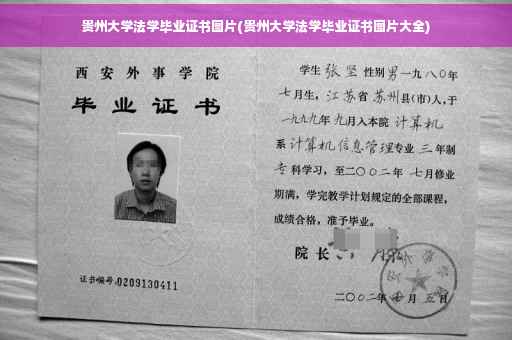 贵州大学法学毕业证书图片(贵州大学法学毕业证书图片大全)
西安外事学院
毕业证书
证书编号:0209130411
学生 张坚 性别 男 一九八〇年
七月生，江苏省 苏州县(市)人,于
一九九九年 九月入本院 计算机
系 计算机信息管理专业 三 年制
专科学习，至二〇〇二年 七月修业
期满，学完教学计划规定的全部课程，
成绩合格，准予毕业。
院长
二〇〇二年 月 五日